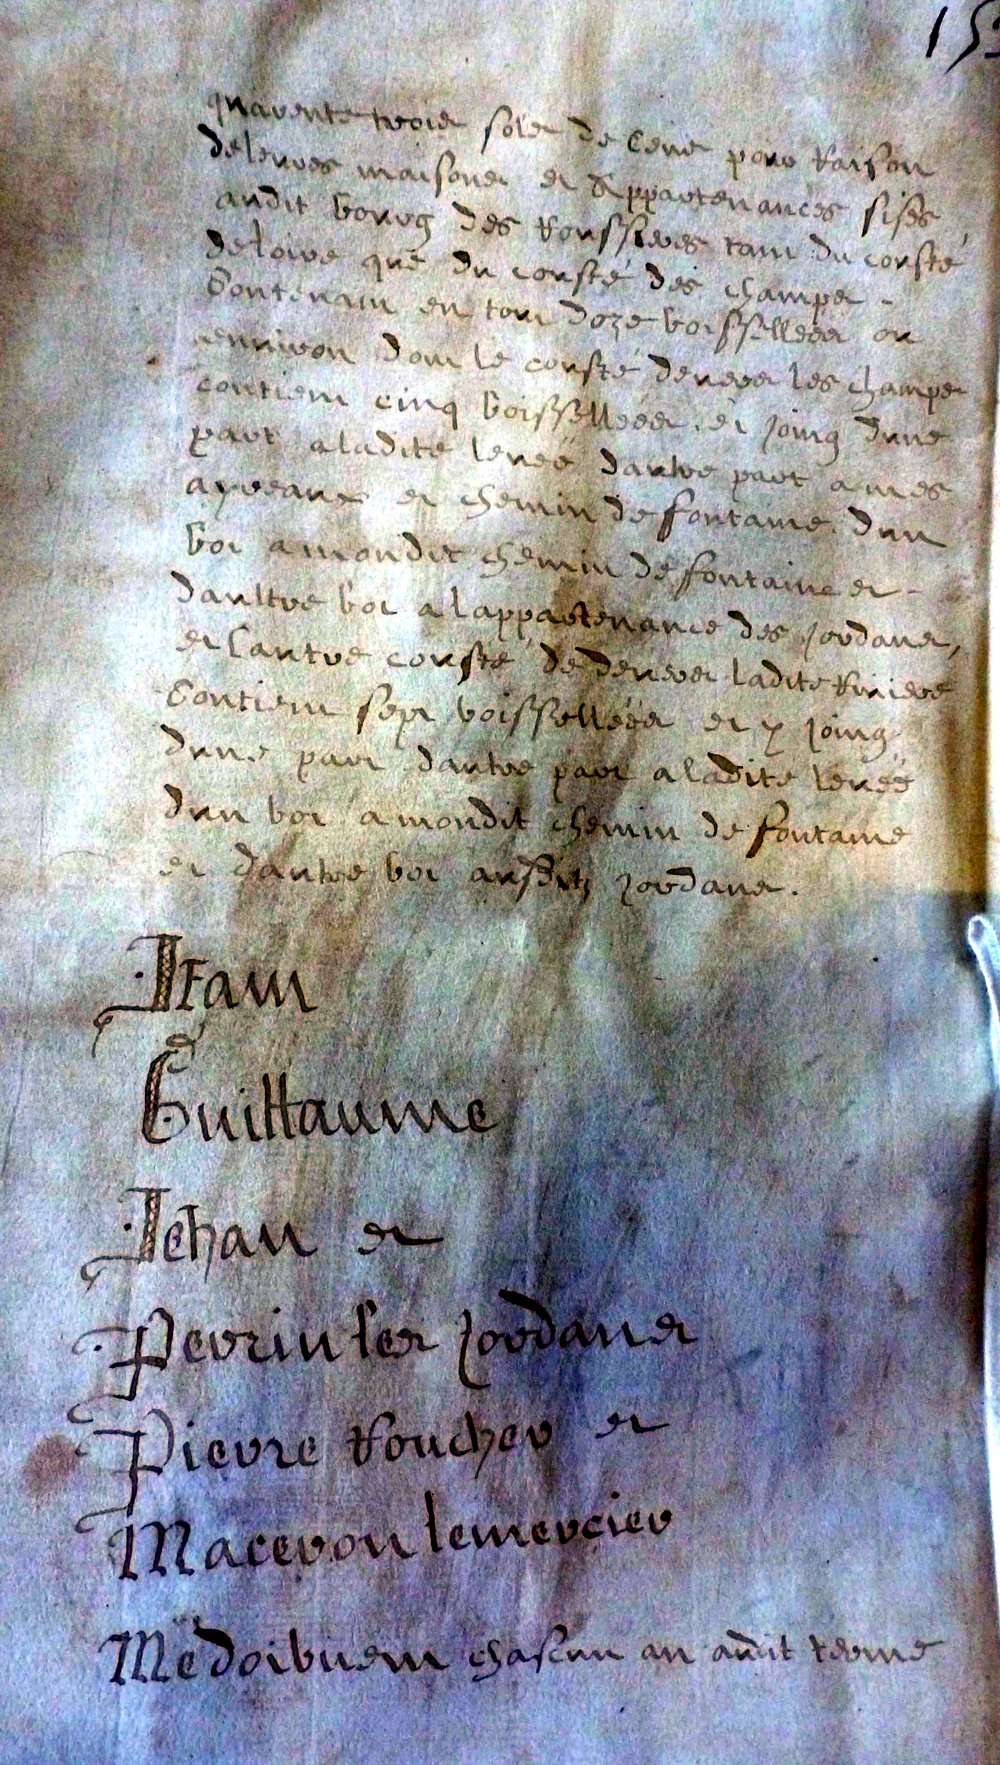 15
quarente trois solz de cens pour raison
de leurs maisons et appartenances sises
audit bourg des Roussieres tant du cousté
de loire que du cousté des champs
Contenant en tout doze boisselleés ou
environ dont le cousté devers les champs
contient cinq boisselleés et joing dune
part a ladite levée dautre part a mes
ayreaux et chemin de fontaine dun
bot a mondit chemin de fontaine et
daultre bot a lappartenance des Jordans,
et lautre cousté de devers ladite riviere
Contient sept boisselleés et y joing
dune part dautre part a ladite levée
dun bot a mondit chemin de fontaine
et dautre bot ausditz Jordans.
Item
Guillaume
Jehan et
Perrin les Jordans
Pierre Roucher et
Maceron lemercier
Me doibvent chascun an audit terme